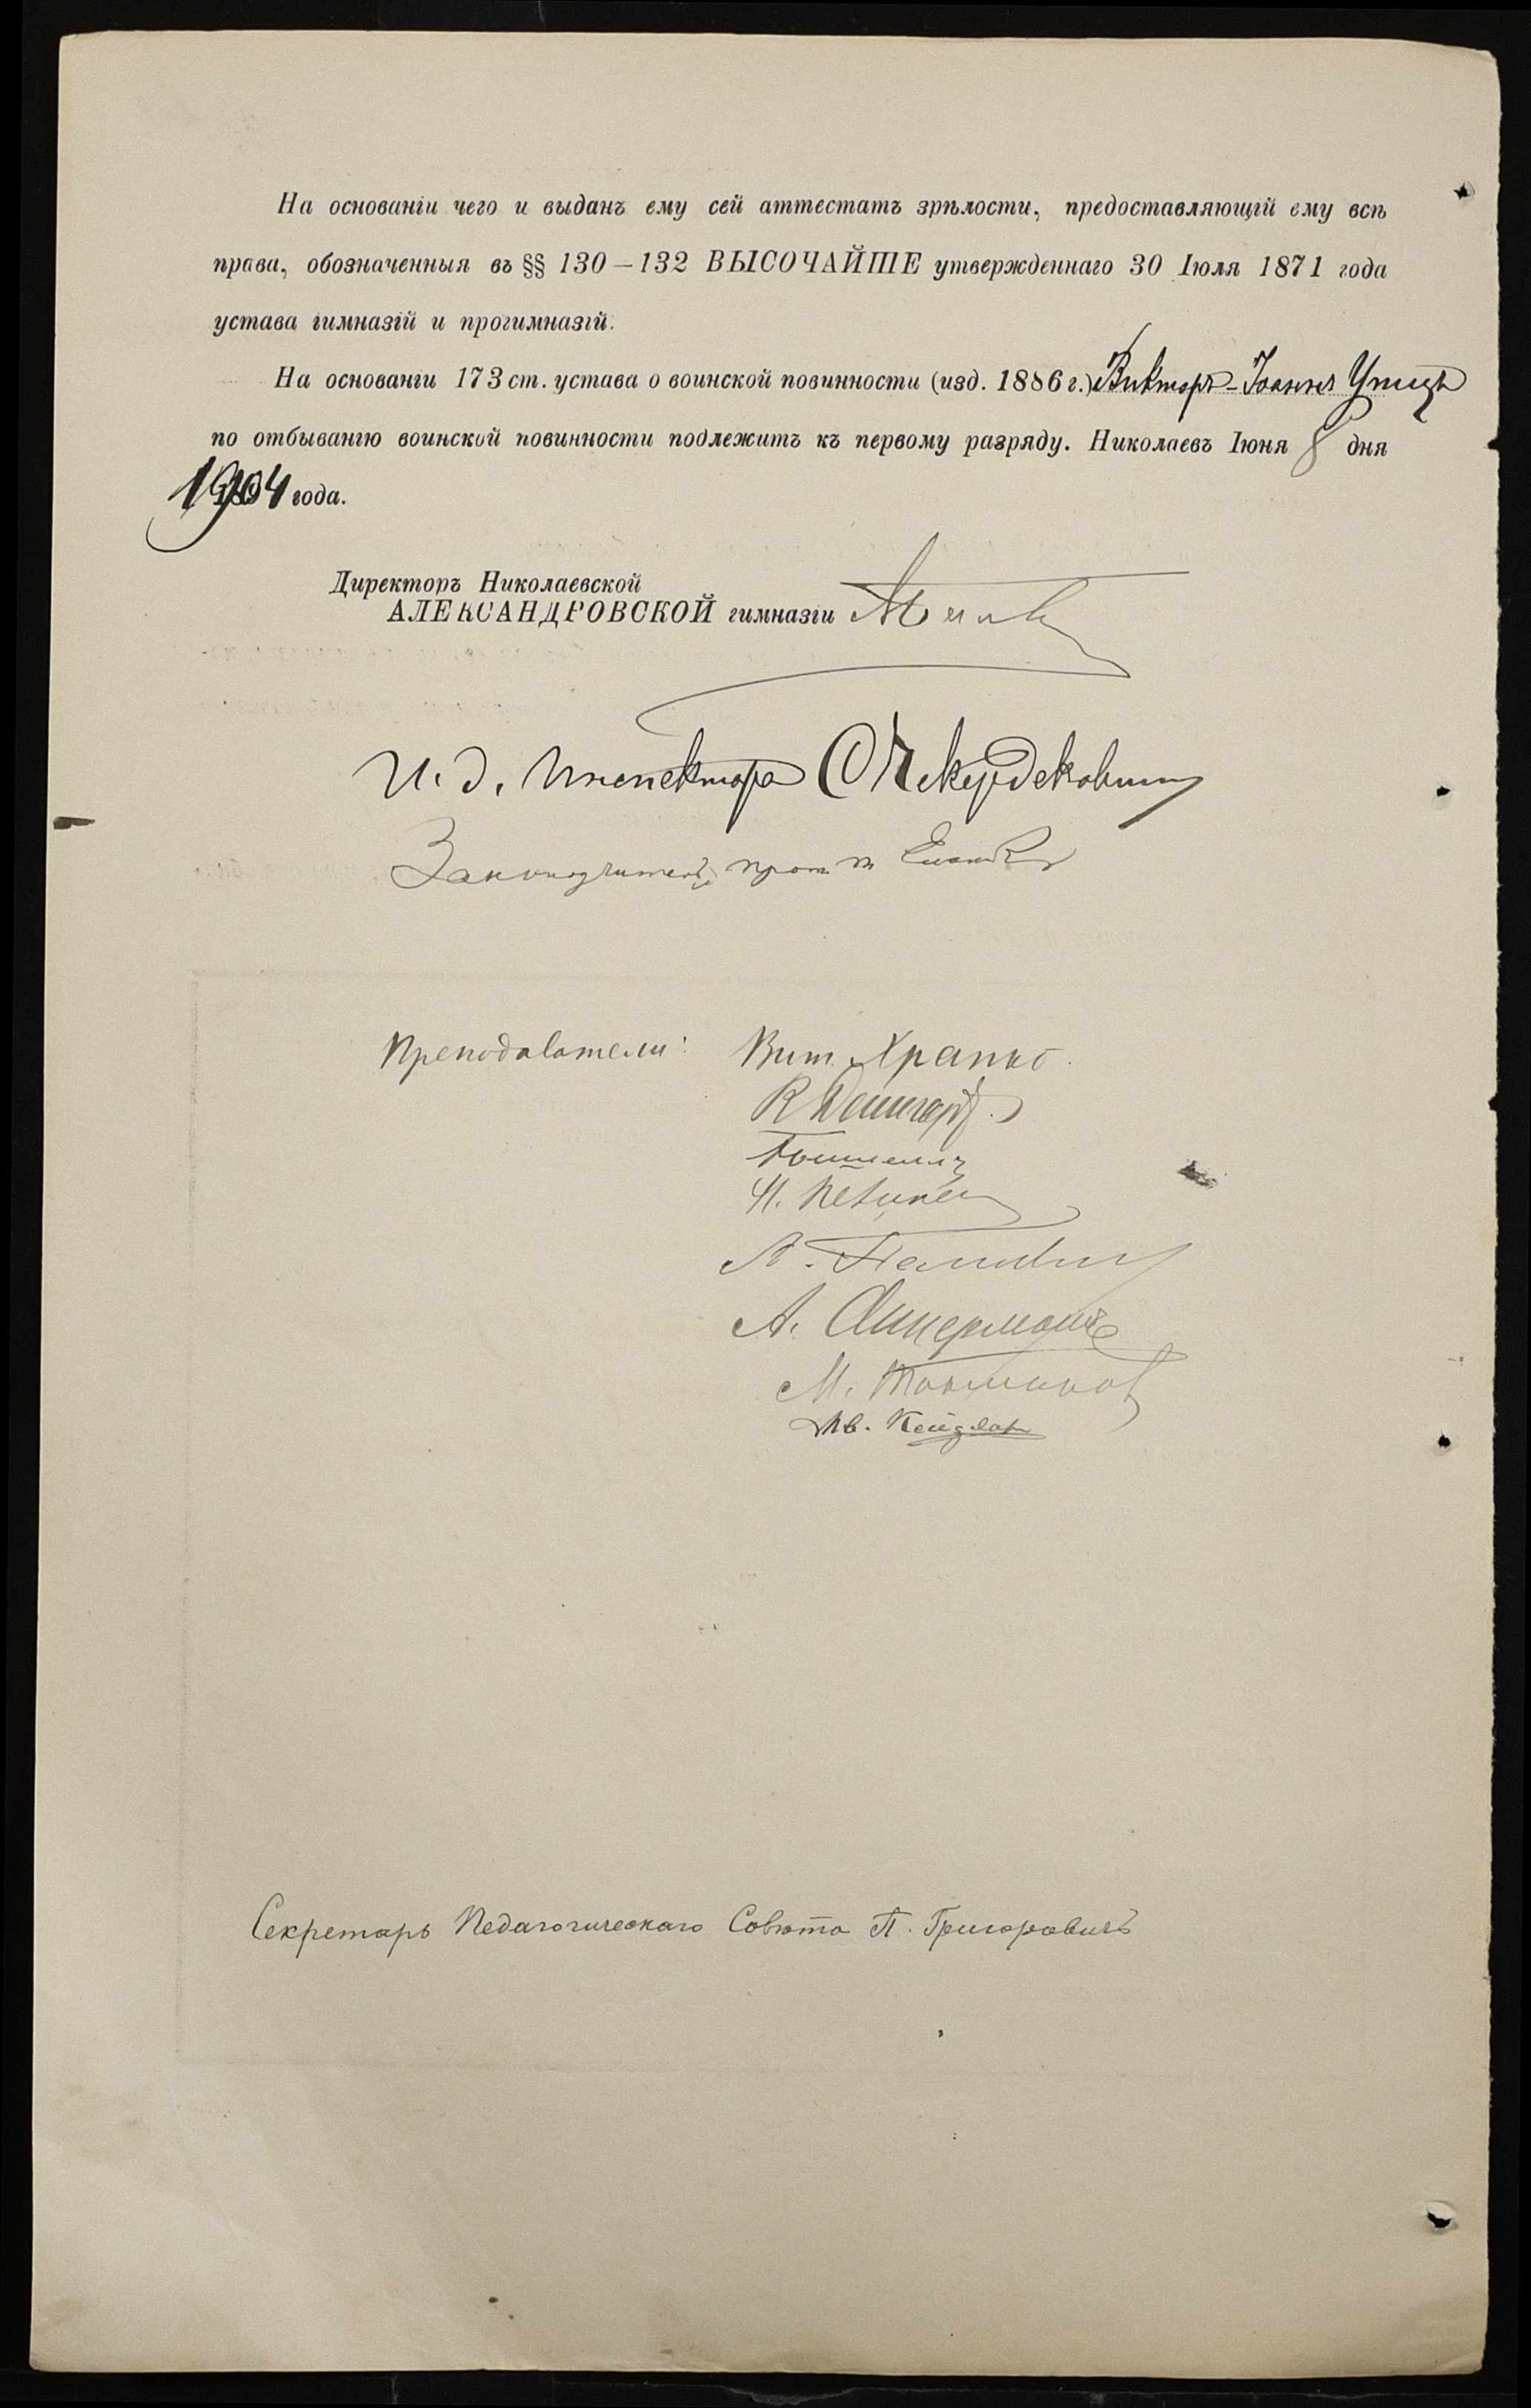 На основаніи чего и выданъ ему сей аттестатъ зрѣлости, предоставляющій ему всѣ
права, обозначенныя въ §§ 130—132 ВЫСОЧАЙШЕ утвержденнаго 30 Іюля 1871 года
устава гимназій и прогимназій.
На основаніи 173 ст. устава о воинской повинности (изд. 1886 г.) Викторъ-Іоаннъ Упитъ
по отбыванію воинской повинности подлежитъ къ первому разряду. Николаевъ Іюня 8 дня
1904 года.
Директоръ Николаевской
АЛЕКСАНДРОВСКОЙ гимназіи
И. д. Инспектора
Законоучитель, прот.
Преподаватели: Вит. Храпко.
К.
Н.
А.
А. Аккерманъ
М. Токмаковъ
Ив. Кейзлар
Секретарь Педагогическаго Совѣта П. Григоровичъ